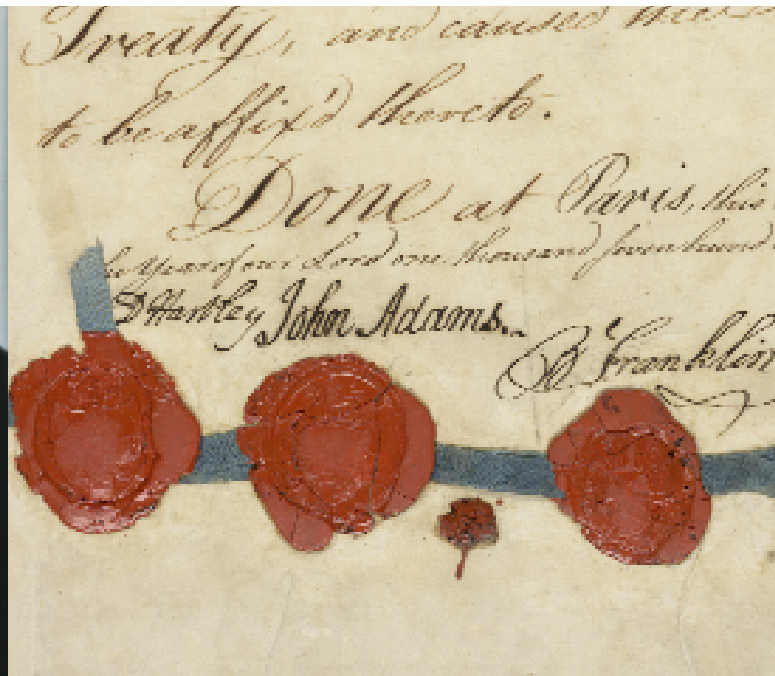 Treaty, and caused
to be affix'd thereto.
Done at Paris, this
year of our Lord one thousand seven hund
D Hartley John Adams.
B Franklin